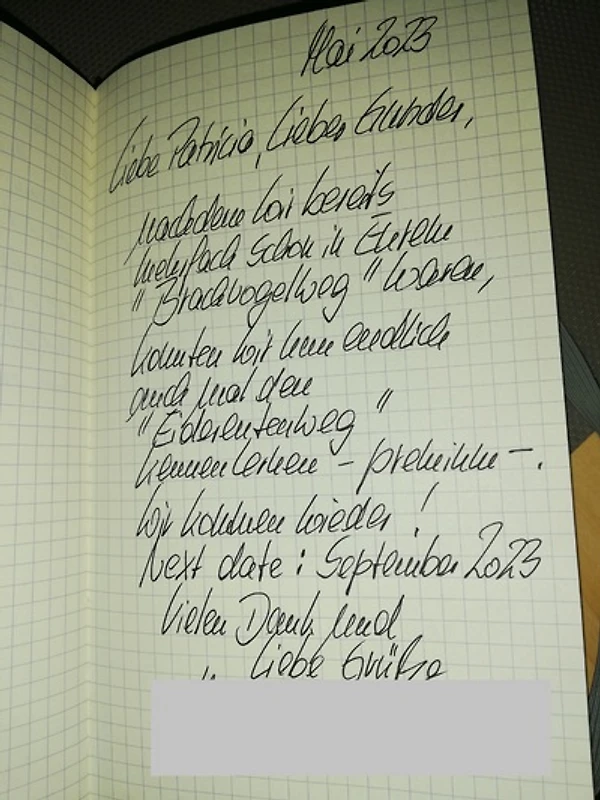 Mai 2023
Liebe Patricia, Lieber Gunder,
nachdem wir bereits
mehrfach schon in Eurem
"Brachvogelweg" waren,
konnten wir nun endlich
auch mal den
"Eiderentenweg"
kennenlernen - prekinku -.
Wir kommen wieder!
Next date: September 2023
Vielen Dank und
Liebe Grüße